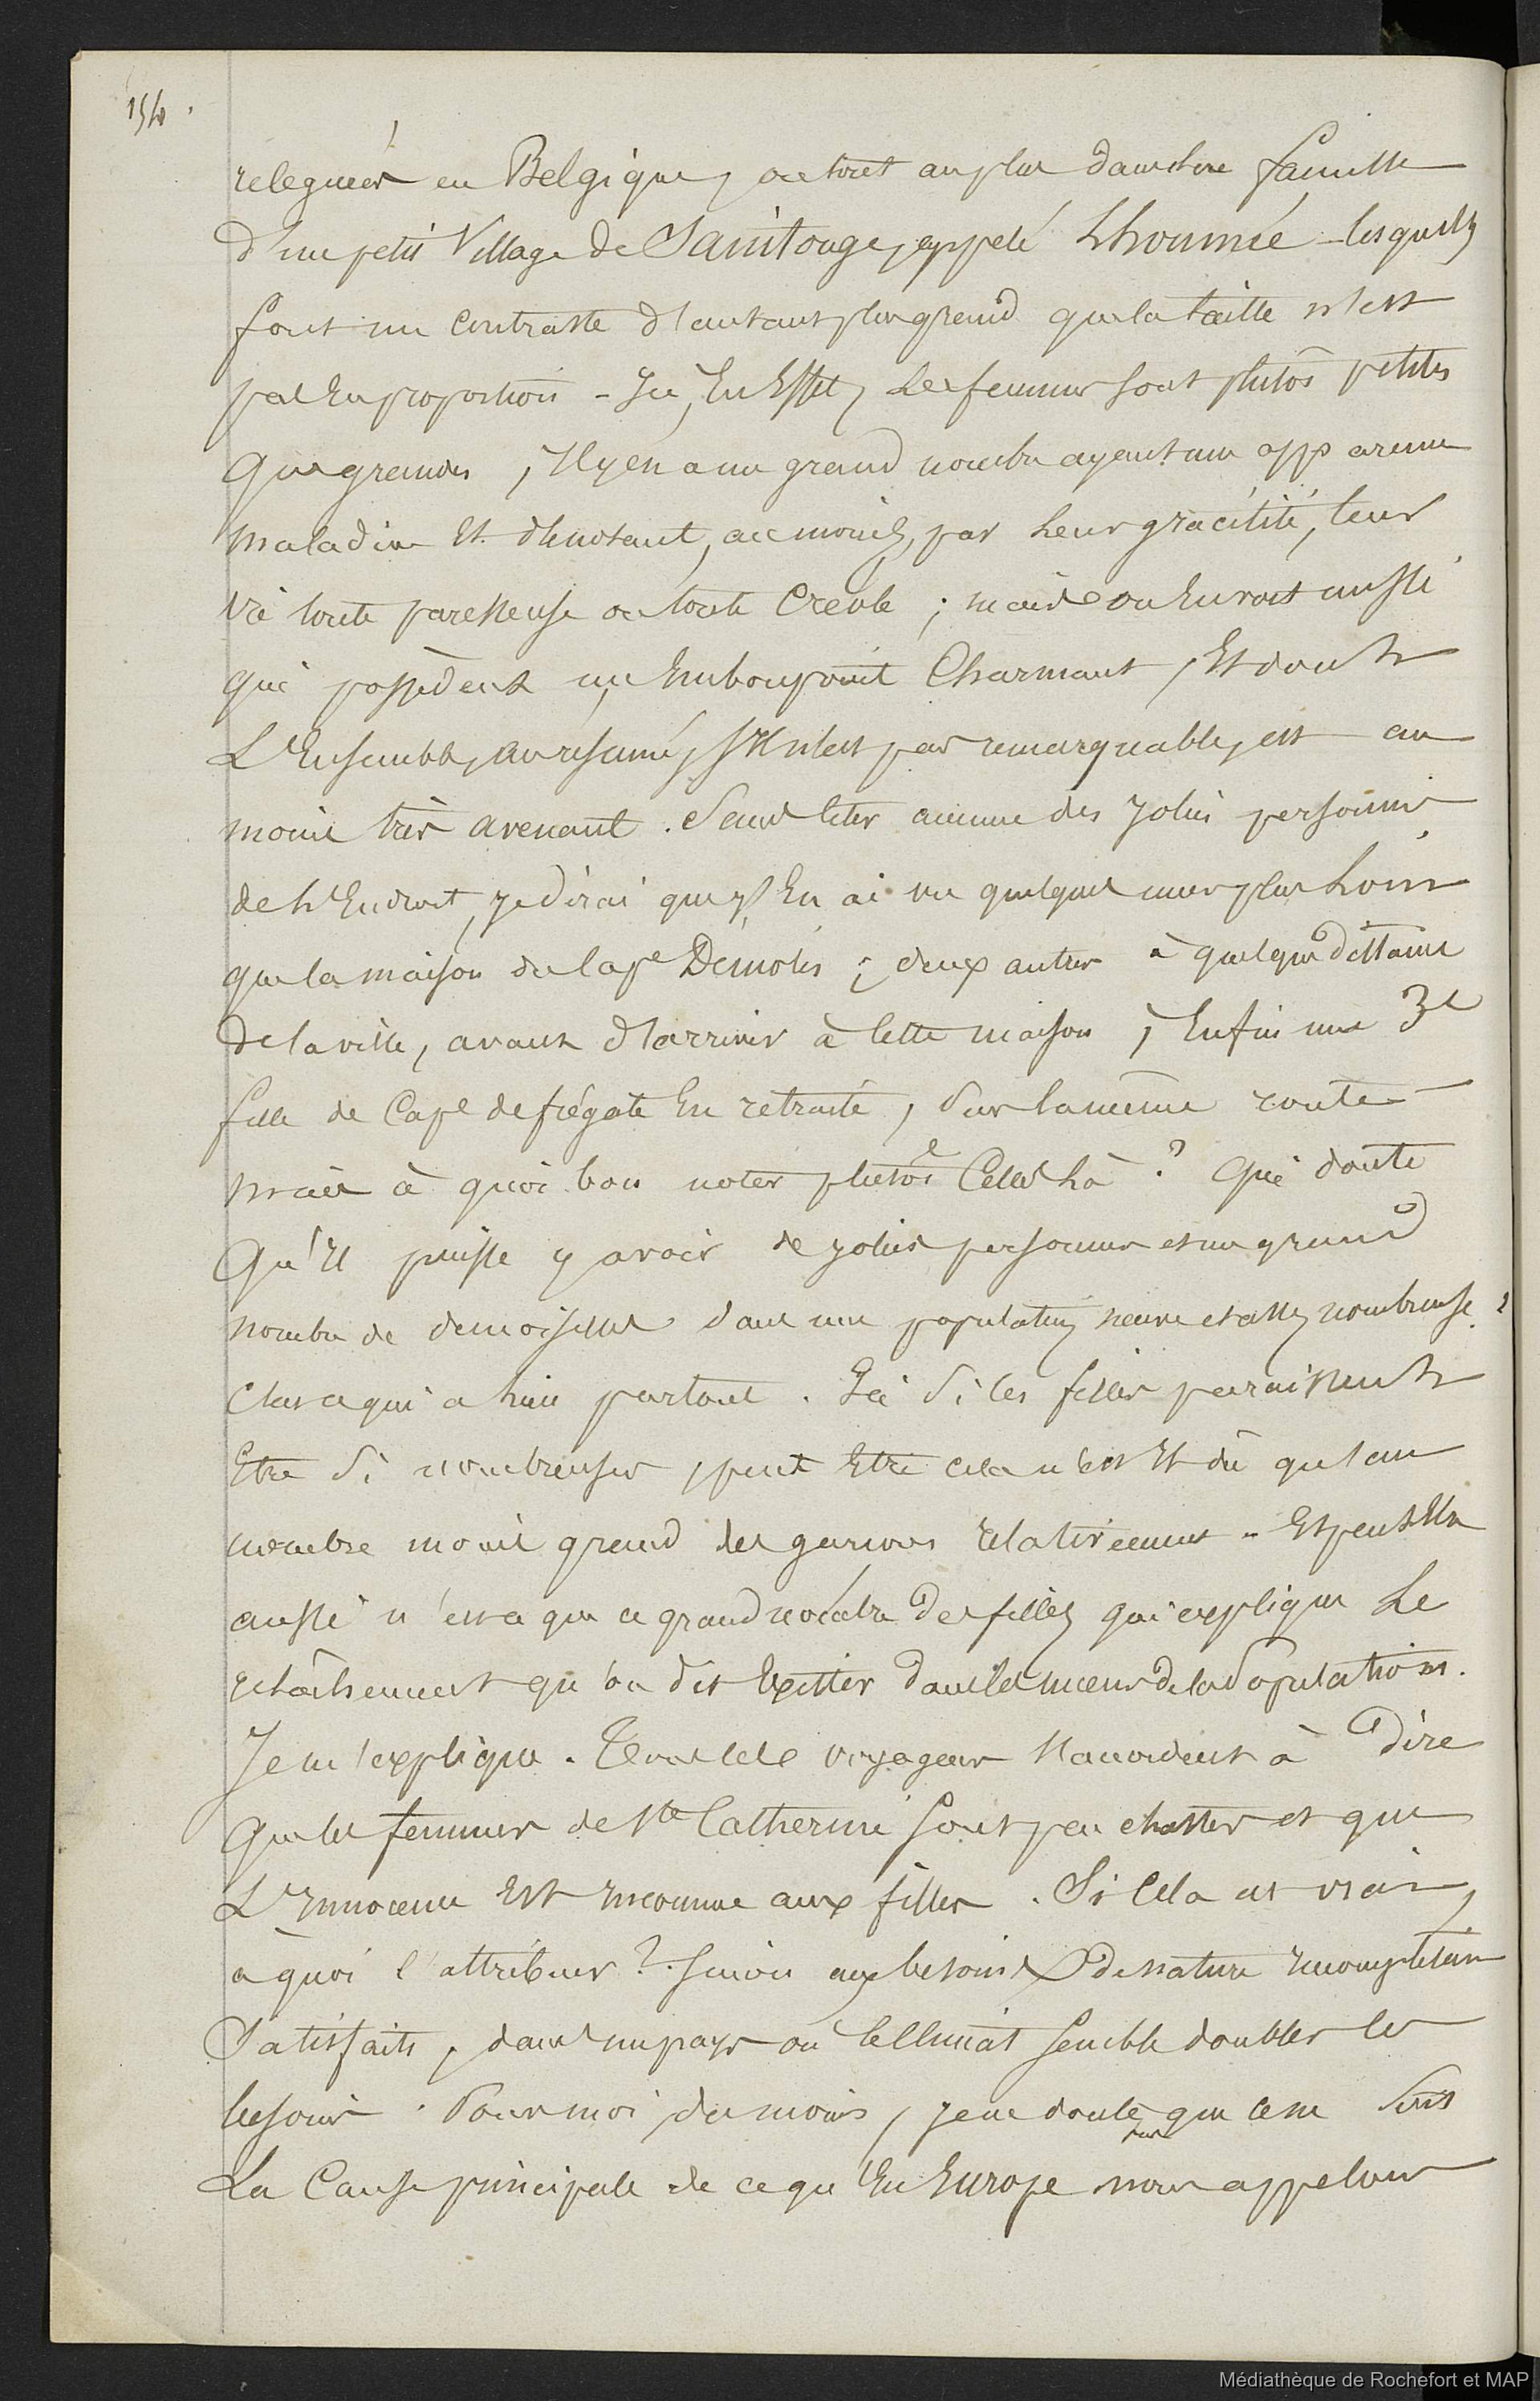 154.
releguées en Belgique, ou tout au plus dans une famille
d'un petit Village de Saintonge, appelé Lhoumée - lesquels
font un contraste d'autant plus grand que la taille n'est
pas En proportion - Ici, En Effet, Les femmes sont plutôt petites
que grandes, Il y en a un grand nombre ayant une apparence
maladive Et dénotant, au moins, par leur gracilité, leur
vie toute paresseuse ou toute Créole ; mais on En voit aussi
qui possèdent un Embonpoint Charmant, Et dont
L'Ensemble, en résumé, s'Il n'est pas remarquable, est au
moins très avenant. Sans citer aucune des jolies personnes
de L'Endroit, je dirai que j'En ai vu quelques unes plus Loin
que la maison du Cape Démolis ; deux autres à quelque distance
de la ville, avant d'arriver à Cette maison, Enfin une 3e
fille de Cape de frégate En retraite, Sur la même route
mais à quoi bon noter plutôt Celles là ? Qui doute
Qu'Il puisse y avoir de jolies personnes et un grand
nombre de demoiselles dans une population neuve et assez nombreuse ?
C'est ce qui a lieu partout. Ici Si les filles paraissent
Etre Si nombreuses, peut Etre cela n'est Il dû qu'au
nombre moins grand des garçons relativement - Et peut Etre
aussi n'est-ce que ce grand nombre de filles qui explique Le
relâchement qu'on dit Exister dans les mœurs de la Population.
Je m'explique. Tous les voyageurs s'accordent à Dire
que les femmes de Ste Catherine sont peu chastes et que
L'Innocence Est Inconnue aux filles. Si Cela est vrai,
à quoi l'attribuer ? Sinon aux besoins de nature Incomplètement
Satisfaits, dans un pays où le Climat semble doubler les
besoins. Pour moi du moins, je ne doute pas que ce ne Soit
La Cause principale de ce qu'En Europe nous appelons
Médiathèque de Rochefort et MAP